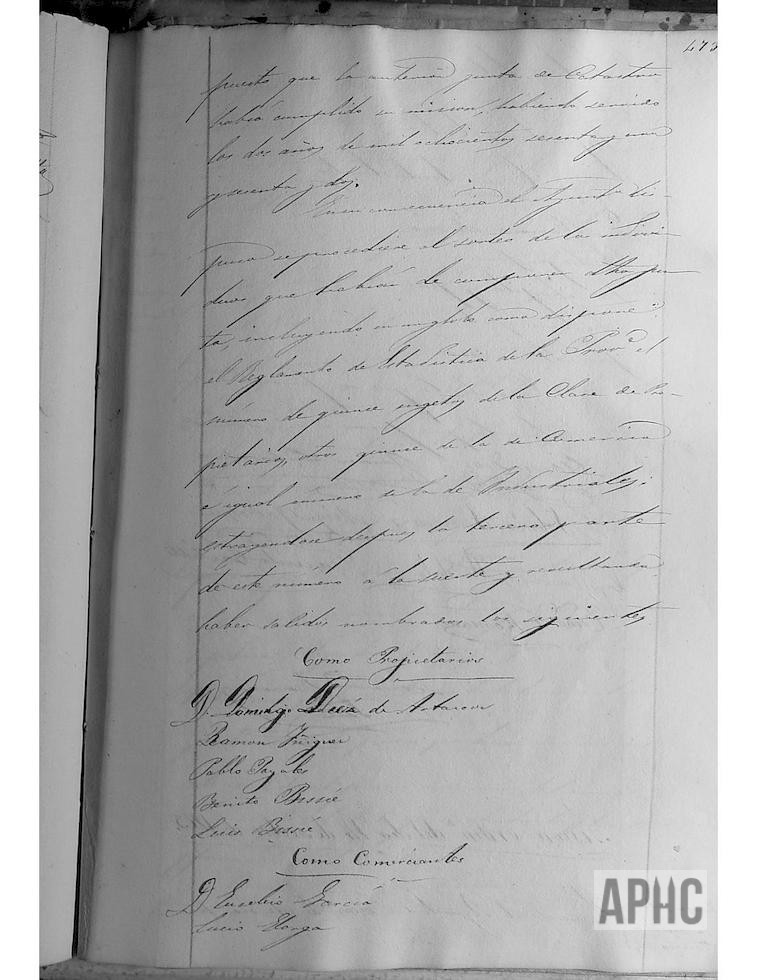 473
puesto que la anterior junta de Catastro
habia cumplido su mision, habiendo servido
los dos años de mil ochocientos sesenta y uno
y sesenta y dos.
En su consecuencia el Ayunta dis-
puso se procediese al sorteo de los indivi-
duos que habian de componer dha jun
ta, incluyendo en un globo como dispone
el Reglamento de Estadistica de la Provª el
número de quince sugetos de la Clase de Pro-
pietarios, otros quince de la de Comercio
é igual número de la de Industriales;
estrayendose despues la tercera parte
de este número á la suerte y resultando
haber salido nombrados los siguientes
Como Propietarios
D. Domingo Diez de
Ramon Yñiguez
Pablo
Benito Bessié
Luis Bessié
Como Comerciantes
D. Eusebio Garcia
Lucio Elorga
APHC